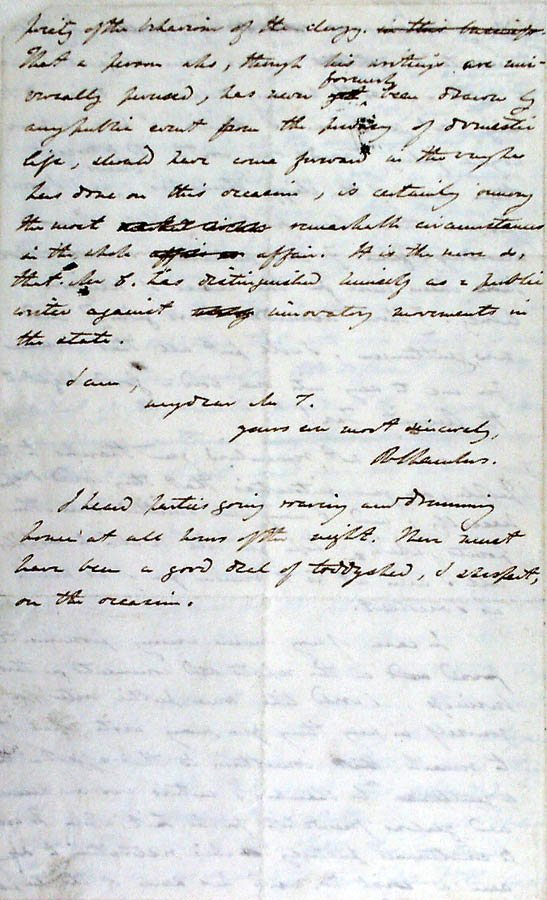 priety of the behaviour of the clergy. in this business.
That a person who, though his writings are uni-
formerly
versally perused, has never yet been drawn by
any public event from the privacy of domestic
life, should have come forward in the way he
has done on this occasion, is certainly among
the most remarkable circumstances
in the whole affair. It is the more so,
that Mr C. has distinguished himself as a public
writer against innovatory movements in
the state.
I am,
my dear Mr T.
yours ever most sincerely,
R Chambers.
I heard parties going roaring and drumming
home at all hours of the night. There must
have been a good deal of toddy shed, I suspect,
on the occasion.